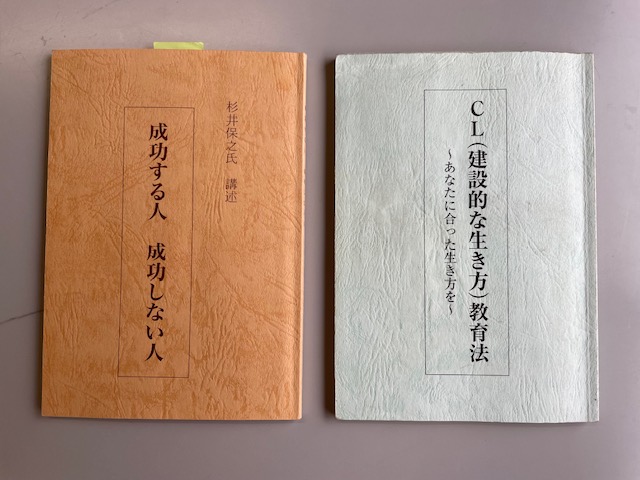 杉井保之氏 講述
成功する人 成功しない人
CL(建設的な生き方)教育法
〜あなたに合った生き方を〜